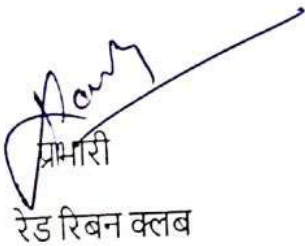 प्रभारी
रेड रिबन क्लब